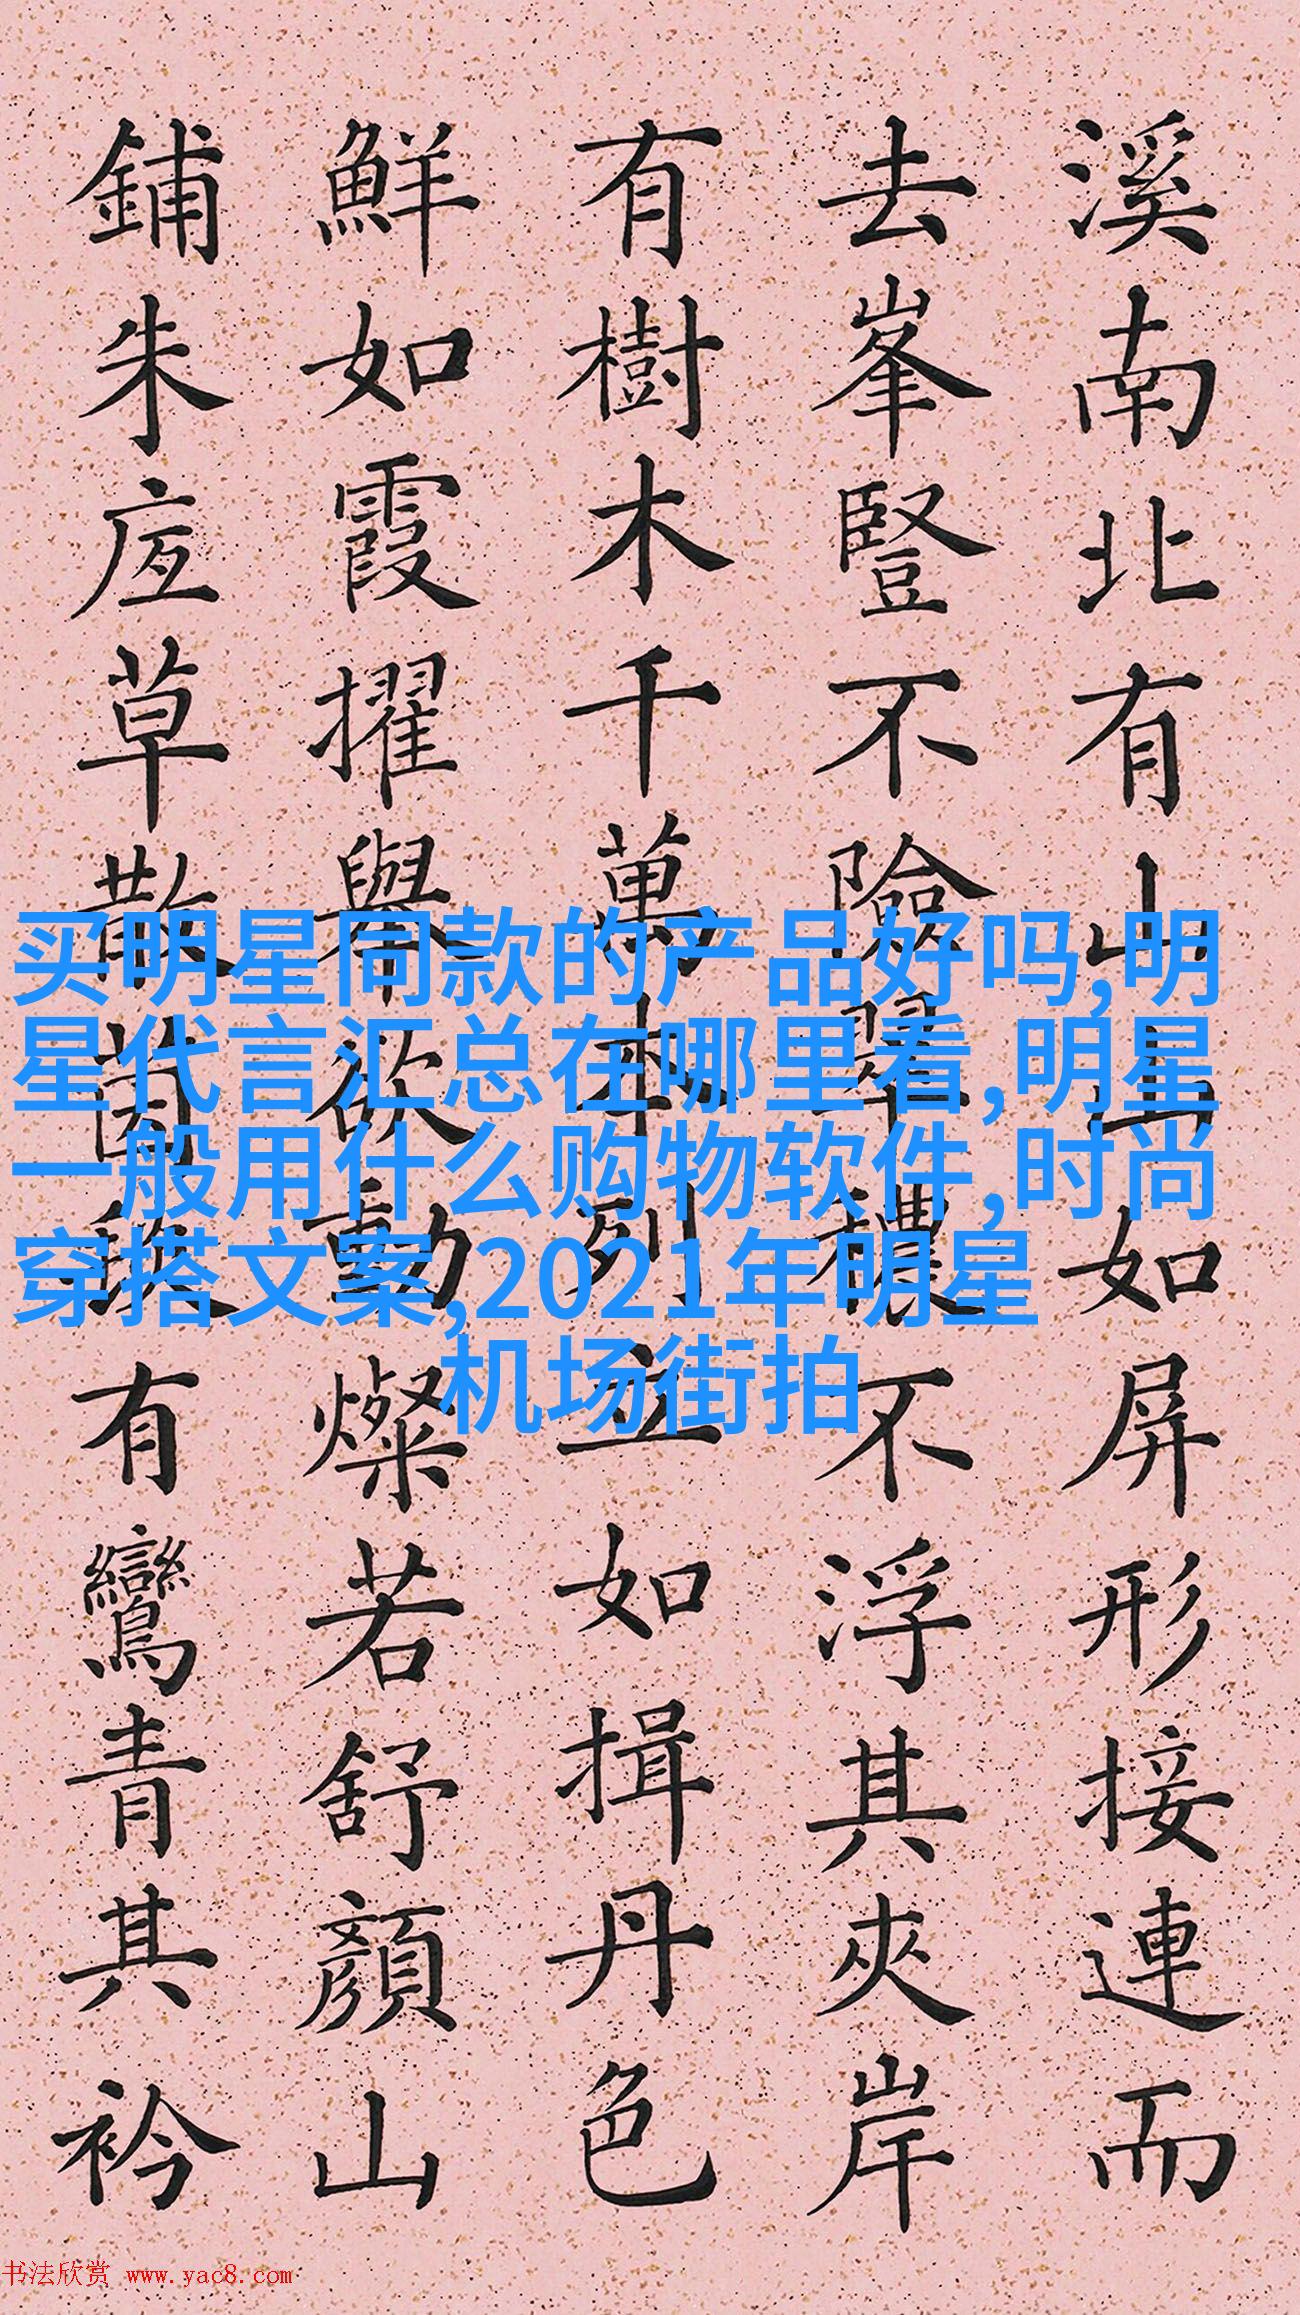 溪南北有山山如屏形接連而
去峯豎不險翠穠不浮其夾岸
有樹木千萬本列立如揖丹色
鮮如霞擢舉欲動燦若舒顏山
鋪朱底草散茵毯有鸞青其衿
买明星同款的产品好吗,明
星代言汇总在哪里看,明星
一般用什么购物软件,时尚
穿搭文案,2021年明星
机场街拍
书法欣赏 www.yac8.com